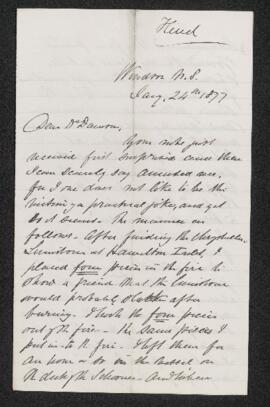 Hind
Windsor N.S.
Jany. 24th 1877
Dear Dr Dawson,
Your note just
received first surprised me then
I can scarcely say amused me,
for I one does not like to be the
victim of a practical joke, and yet
so it seems. The matter is as
follows. After finding the
Limestone at Hamilton Inlet, I
placed four pieces in the fire to
show a friend that the limestone
would probably slake after
burning. I took the four pieces
out of the fire. The same pieces I
put into the fire. I left them for
an hour or so in the
the deck of the Schooner. And when